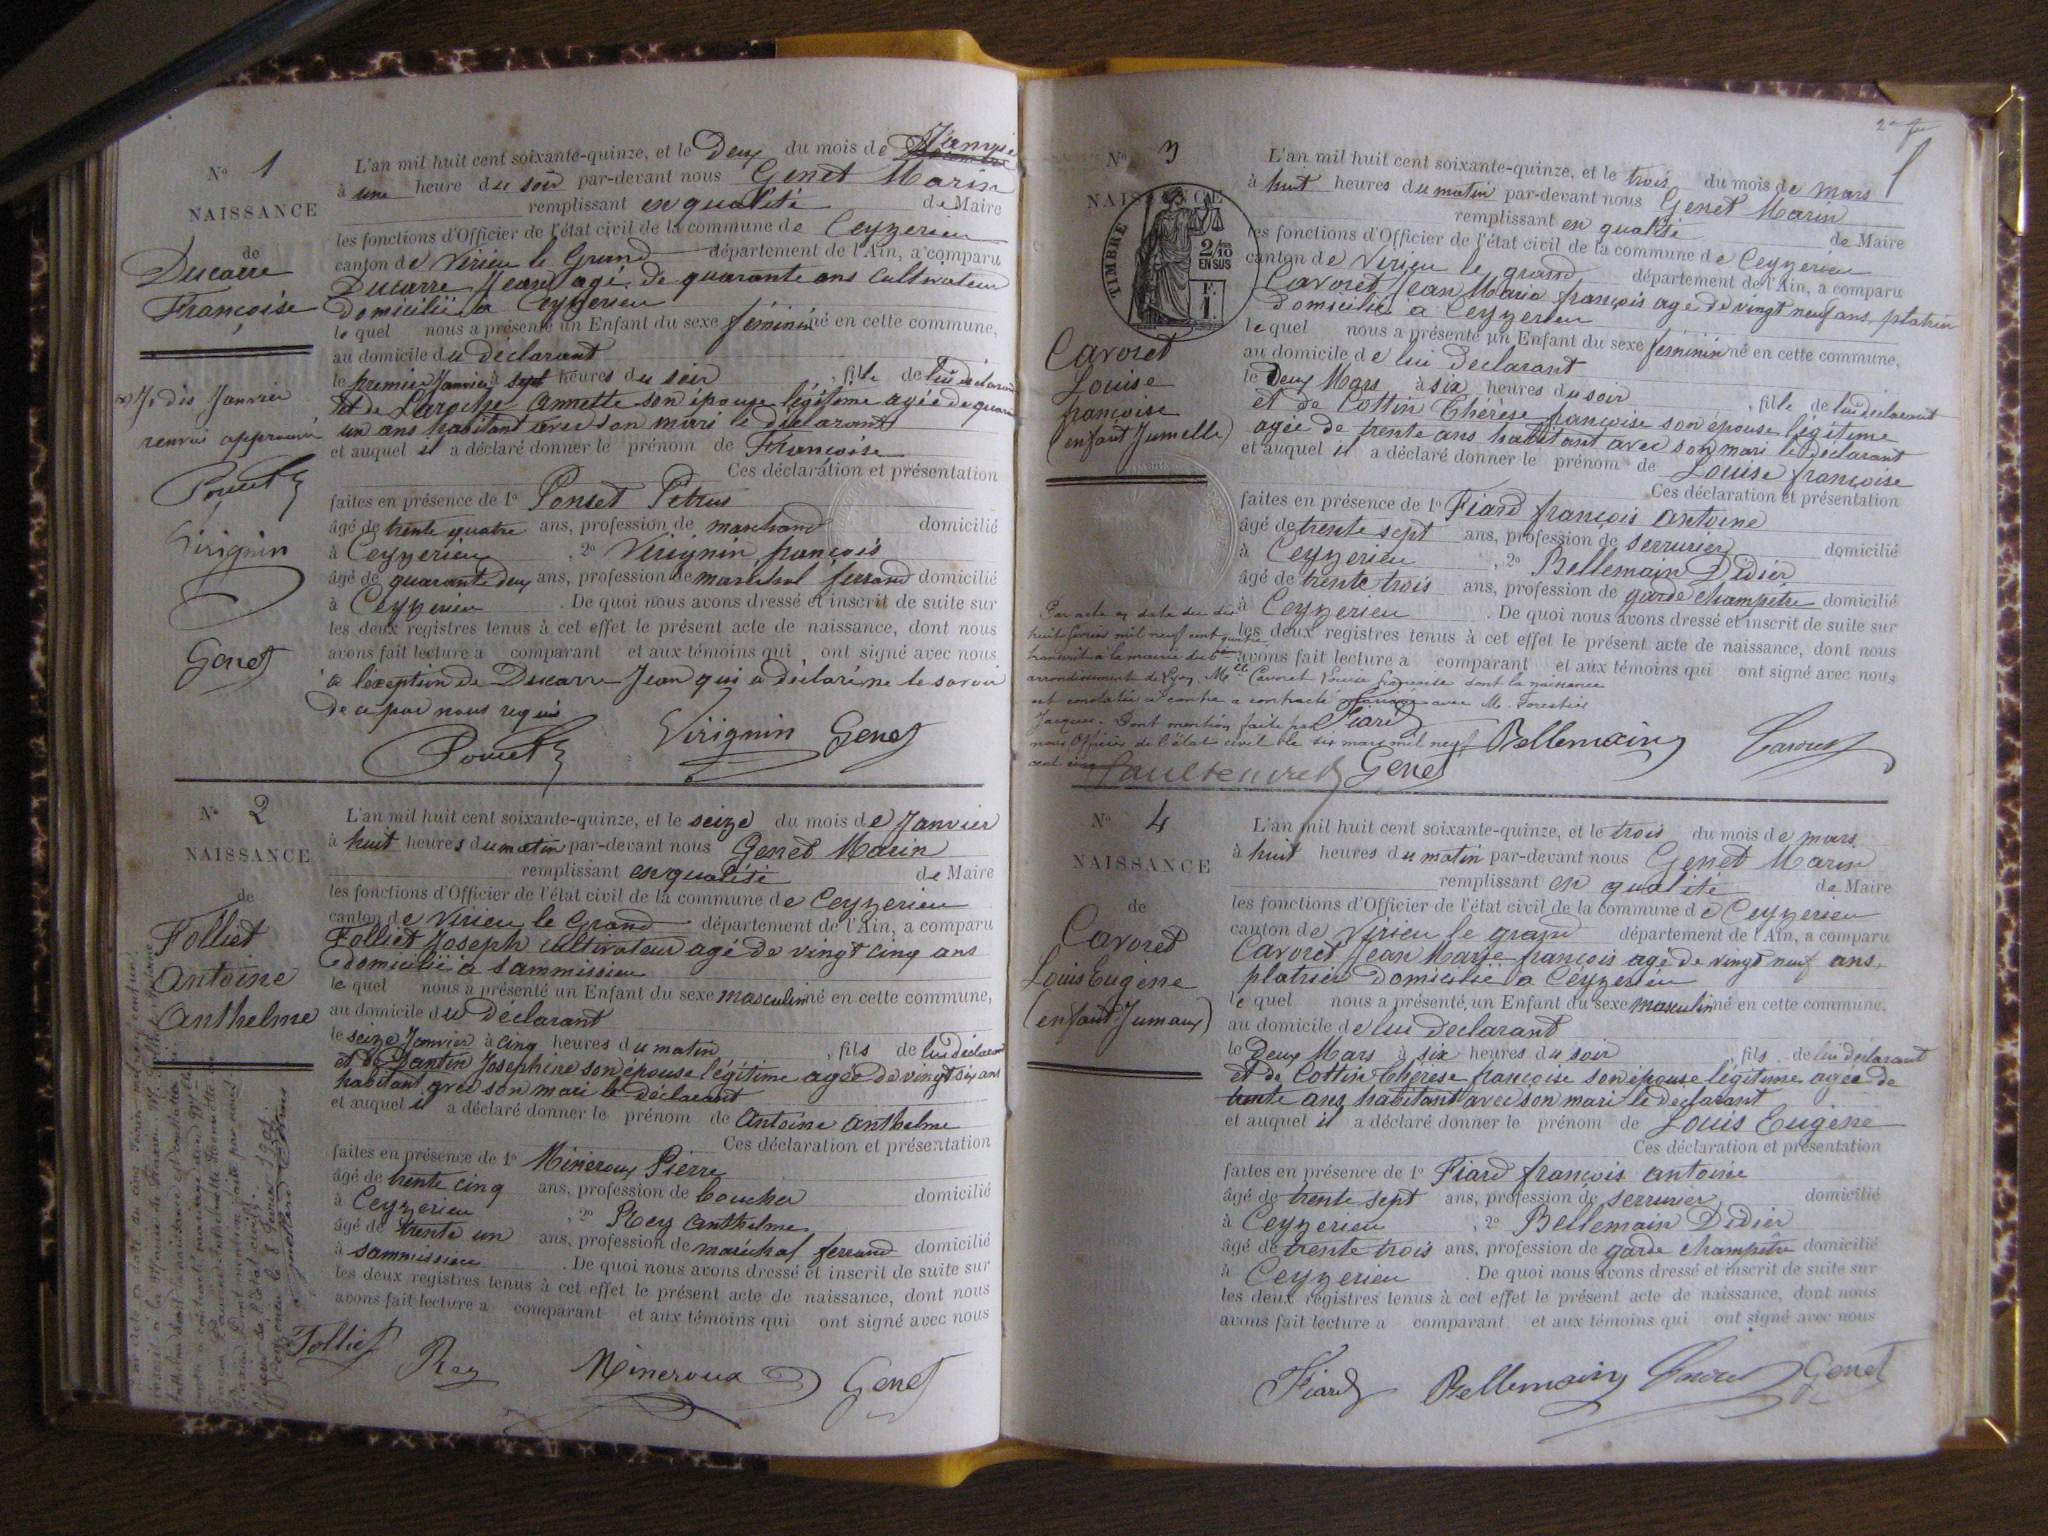 N° 1
NAISSANCE
de
Ducarre
Françoise
Je dis Janvier
renvoi approuvé
Poncet
Virignin
Genet
L'an mil huit cent soixante-quinze, et le Deux du mois de Janvier
à une heure du soir par-devant nous Genet Marin
remplissant en qualité de Maire
les fonctions d'Officier de l'état civil de la commune de Ceyzerieu
canton de Virieu le Grand département de l'Ain, a comparu
Ducarre Jean agé de quarante ans cultivateur
domicilié à Ceyzerieu
le quel nous a présenté un Enfant du sexe féminin né en cette commune,
au domicile du déclarant
le premier Janvier à sept heures du soir , fille de lui déclarant
et de Laroche Annette son épouse légitime agée de quarante
un ans habitant avec son mari le déclarant
et auquel il a déclaré donner le prénom de Françoise
Ces déclaration et présentation
faites en présence de 1° Ponset Petrus
âgé de trente quatre ans, profession de marchand domicilié
à Ceyzerieu , 2° Virignin françois
âgé de quarante deux ans, profession de maréchal ferrand domicilié
à Ceyzerieu . De quoi nous avons dressé et inscrit de suite sur
les deux registres tenus à cet effet le présent acte de naissance, dont nous
avons fait lecture a comparant et aux témoins qui ont signé avec nous
à l'exeption de Ducarre Jean qui a déclaré ne le savoir
de ce par nous requis
Poncet Virignin Genet
N° 2
NAISSANCE
de
Folliet
Antoine
Anthelme
L'an mil huit cent soixante-quinze, et le seize du mois de Janvier
à huit heures du matin par-devant nous Genet Marin
remplissant en qualité de Maire
les fonctions d'Officier de l'état civil de la commune de Ceyzerieu
canton de Virieu le Grand département de l'Ain, a comparu
Folliet Joseph cultivateur agé de vingt cinq ans
domicilié à Sammissieu
le quel nous a présenté un Enfant du sexe masculin né en cette commune,
au domicile du Déclarant
le seize Janvier à cinq heures du matin , fils de lui déclarant
et de Dantin Josephine son épouse légitime agée de vingt six ans
habitant avec son mari le déclarant
et auquel il a déclaré donner le prénom de Antoine Anthelme
Ces déclaration et présentation
faites en présence de 1° Mineroux Pierre
âgé de trente cinq ans, profession de boucher domicilié
à Ceyzerieu , 2° Rey Anthelme
âgé de trente un ans, profession de maréchal ferrand domicilié
à Sammissieu . De quoi nous avons dressé et inscrit de suite sur
les deux registres tenus à cet effet le présent acte de naissance, dont nous
avons fait lecture a comparant et aux témoins qui ont signé avec nous
Folliet Rey Mineroux Genet
2e
N° 3
NAISSANCE
TIMBRE
2/10
EN SUS
F.
1.
Cavoret
Louise
françoise
(enfant Jumelle)
L'an mil huit cent soixante-quinze, et le trois du mois de mars
à huit heures du matin par-devant nous Genet Marin
remplissant en qualité de Maire
les fonctions d'Officier de l'état civil de la commune de Ceyzerieu
canton de Virieu le grand département de l'Ain, a comparu
Cavoret Jean Marie françois agé de vingt neuf ans, platrier
domicilié à Ceyzerieu
le quel nous a présenté un Enfant du sexe féminin né en cette commune,
au domicile de lui déclarant
le Deux Mars à six heures du soir , fille de lui déclarant
et de Cottin Thérèse françoise son épouse légitime
agée de trente ans habitant avec son mari le déclarant
et auquel il a déclaré donner le prénom de Louise françoise
Ces déclaration et présentation
faites en présence de 1° Fiard françois antoine
âgé de trente sept ans, profession de serrurier domicilié
à Ceyzerieu , 2° Bellemain Didier
âgé de trente trois ans, profession de garde champêtre domicilié
à Ceyzerieu . De quoi nous avons dressé et inscrit de suite sur
les deux registres tenus à cet effet le présent acte de naissance, dont nous
avons fait lecture a comparant et aux témoins qui ont signé avec nous
Par acte en date du dix
huit février mil neuf cent quatre
transcrit à la mairie du 6me
arrondissement de Lyon, Melle Cavoret Louise françoise dont la naissance
est constatée ci contre a contracté mariage avec M. Forestier
Jacques. Dont mention faite par
nous Officier de l'état civil le six mars mil neuf
cent
Fiard Bellemain Cavoret
Genet
N° 4
NAISSANCE
de
Cavoret
Louis Eugène
(enfant Jumaux)
L'an mil huit cent soixante-quinze, et le trois du mois de mars
à huit heures du matin par-devant nous Genet Marin
remplissant en qualité de Maire
les fonctions d'Officier de l'état civil de la commune de Ceyzerieu
canton de Virieu le grand département de l'Ain, a comparu
Cavoret Jean Marie françois agé de vingt neuf ans,
platrier domicilié à Ceyzerieu
le quel nous a présenté un Enfant du sexe masculin né en cette commune,
au domicile de lui déclarant
le Deux Mars à six heures du soir , fils de lui déclarant
et de Cottin Thérèse françoise son épouse légitime agée de
trente ans habitant avec son mari le déclarant
et auquel il a déclaré donner le prénom de Louis Eugène
Ces déclaration et présentation
faites en présence de 1° Fiard françois antoine
âgé de trente sept ans, profession de serrurier domicilié
à Ceyzerieu , 2° Bellemain Didier
âgé de trente trois ans, profession de garde champêtre domicilié
à Ceyzerieu . De quoi nous avons dressé et inscrit de suite sur
les deux registres tenus à cet effet le présent acte de naissance, dont nous
avons fait lecture a comparant et aux témoins qui ont signé avec nous
Fiard Bellemain Cavoret Genet